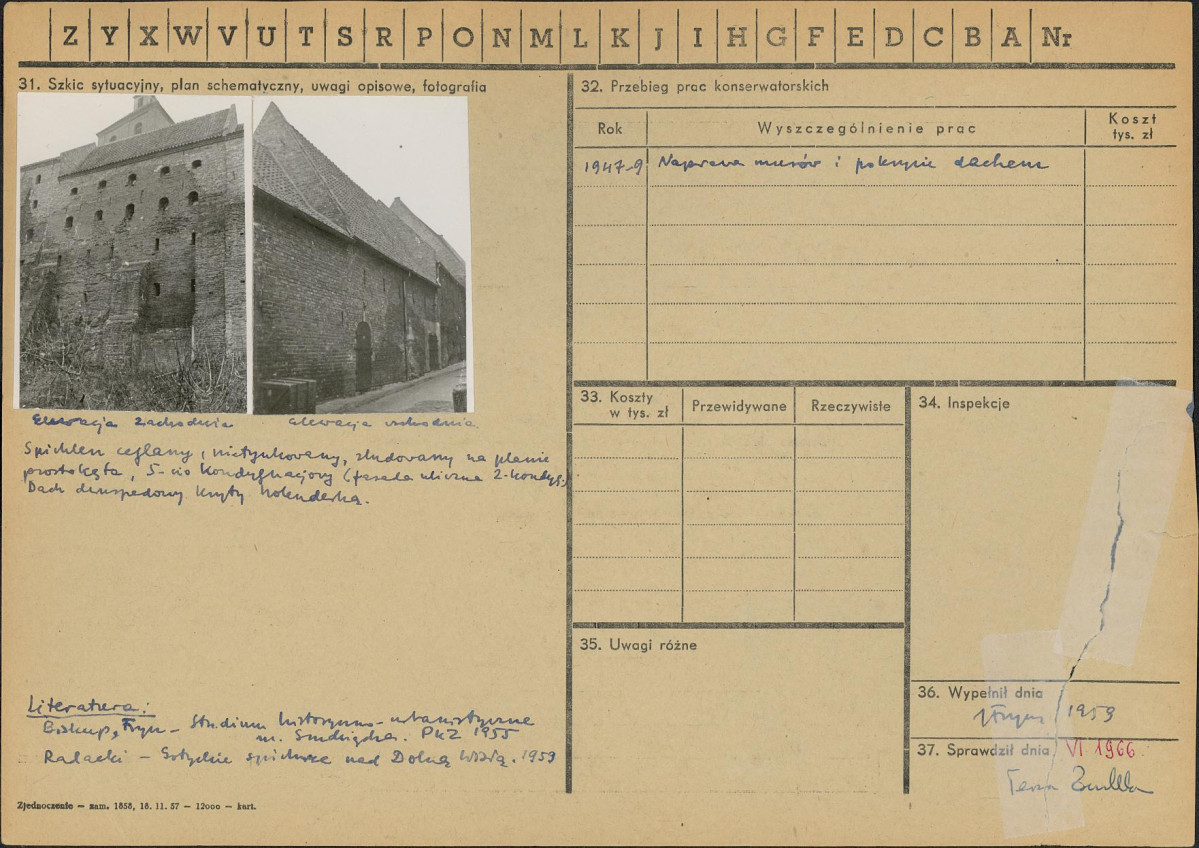 Z Y X W V U T S R P O N M L K J I H G F E D C B A Nr
31. Szkic sytuacyjny, plan schematyczny, uwagi opisowe, fotografia
Elewacja zachodnia
elewacja wschodnia
Spichlerz ceglany, nietynkowany, zbudowany na planie
prostokąta, 5-cio kondygnacjowy (fasada uliczna 2-kondyg.)
Dach dwuspadowy kryty holenderką.
Literatura:
Biskup, Fryn – Studium historyczno-urbanistyczne
m. Grudziądza. PKZ 1955
– Gotyckie spichrze nad Dolną Wisłą. 1959
Zjednoczenie — zam. 1858, 18. 11. 57 — 12000 — kart.
32. Przebieg prac konserwatorskich
Rok
Wyszczególnienie prac
Koszt
tys. zł
1947-9
Naprawa murów i pokrycie dachem
33. Koszty
w tys. zł
Przewidywane
Rzeczywiste
34. Inspekcje
35. Uwagi różne
36. Wypełnił dnia
1959
37. Sprawdził dnia VI 1966.